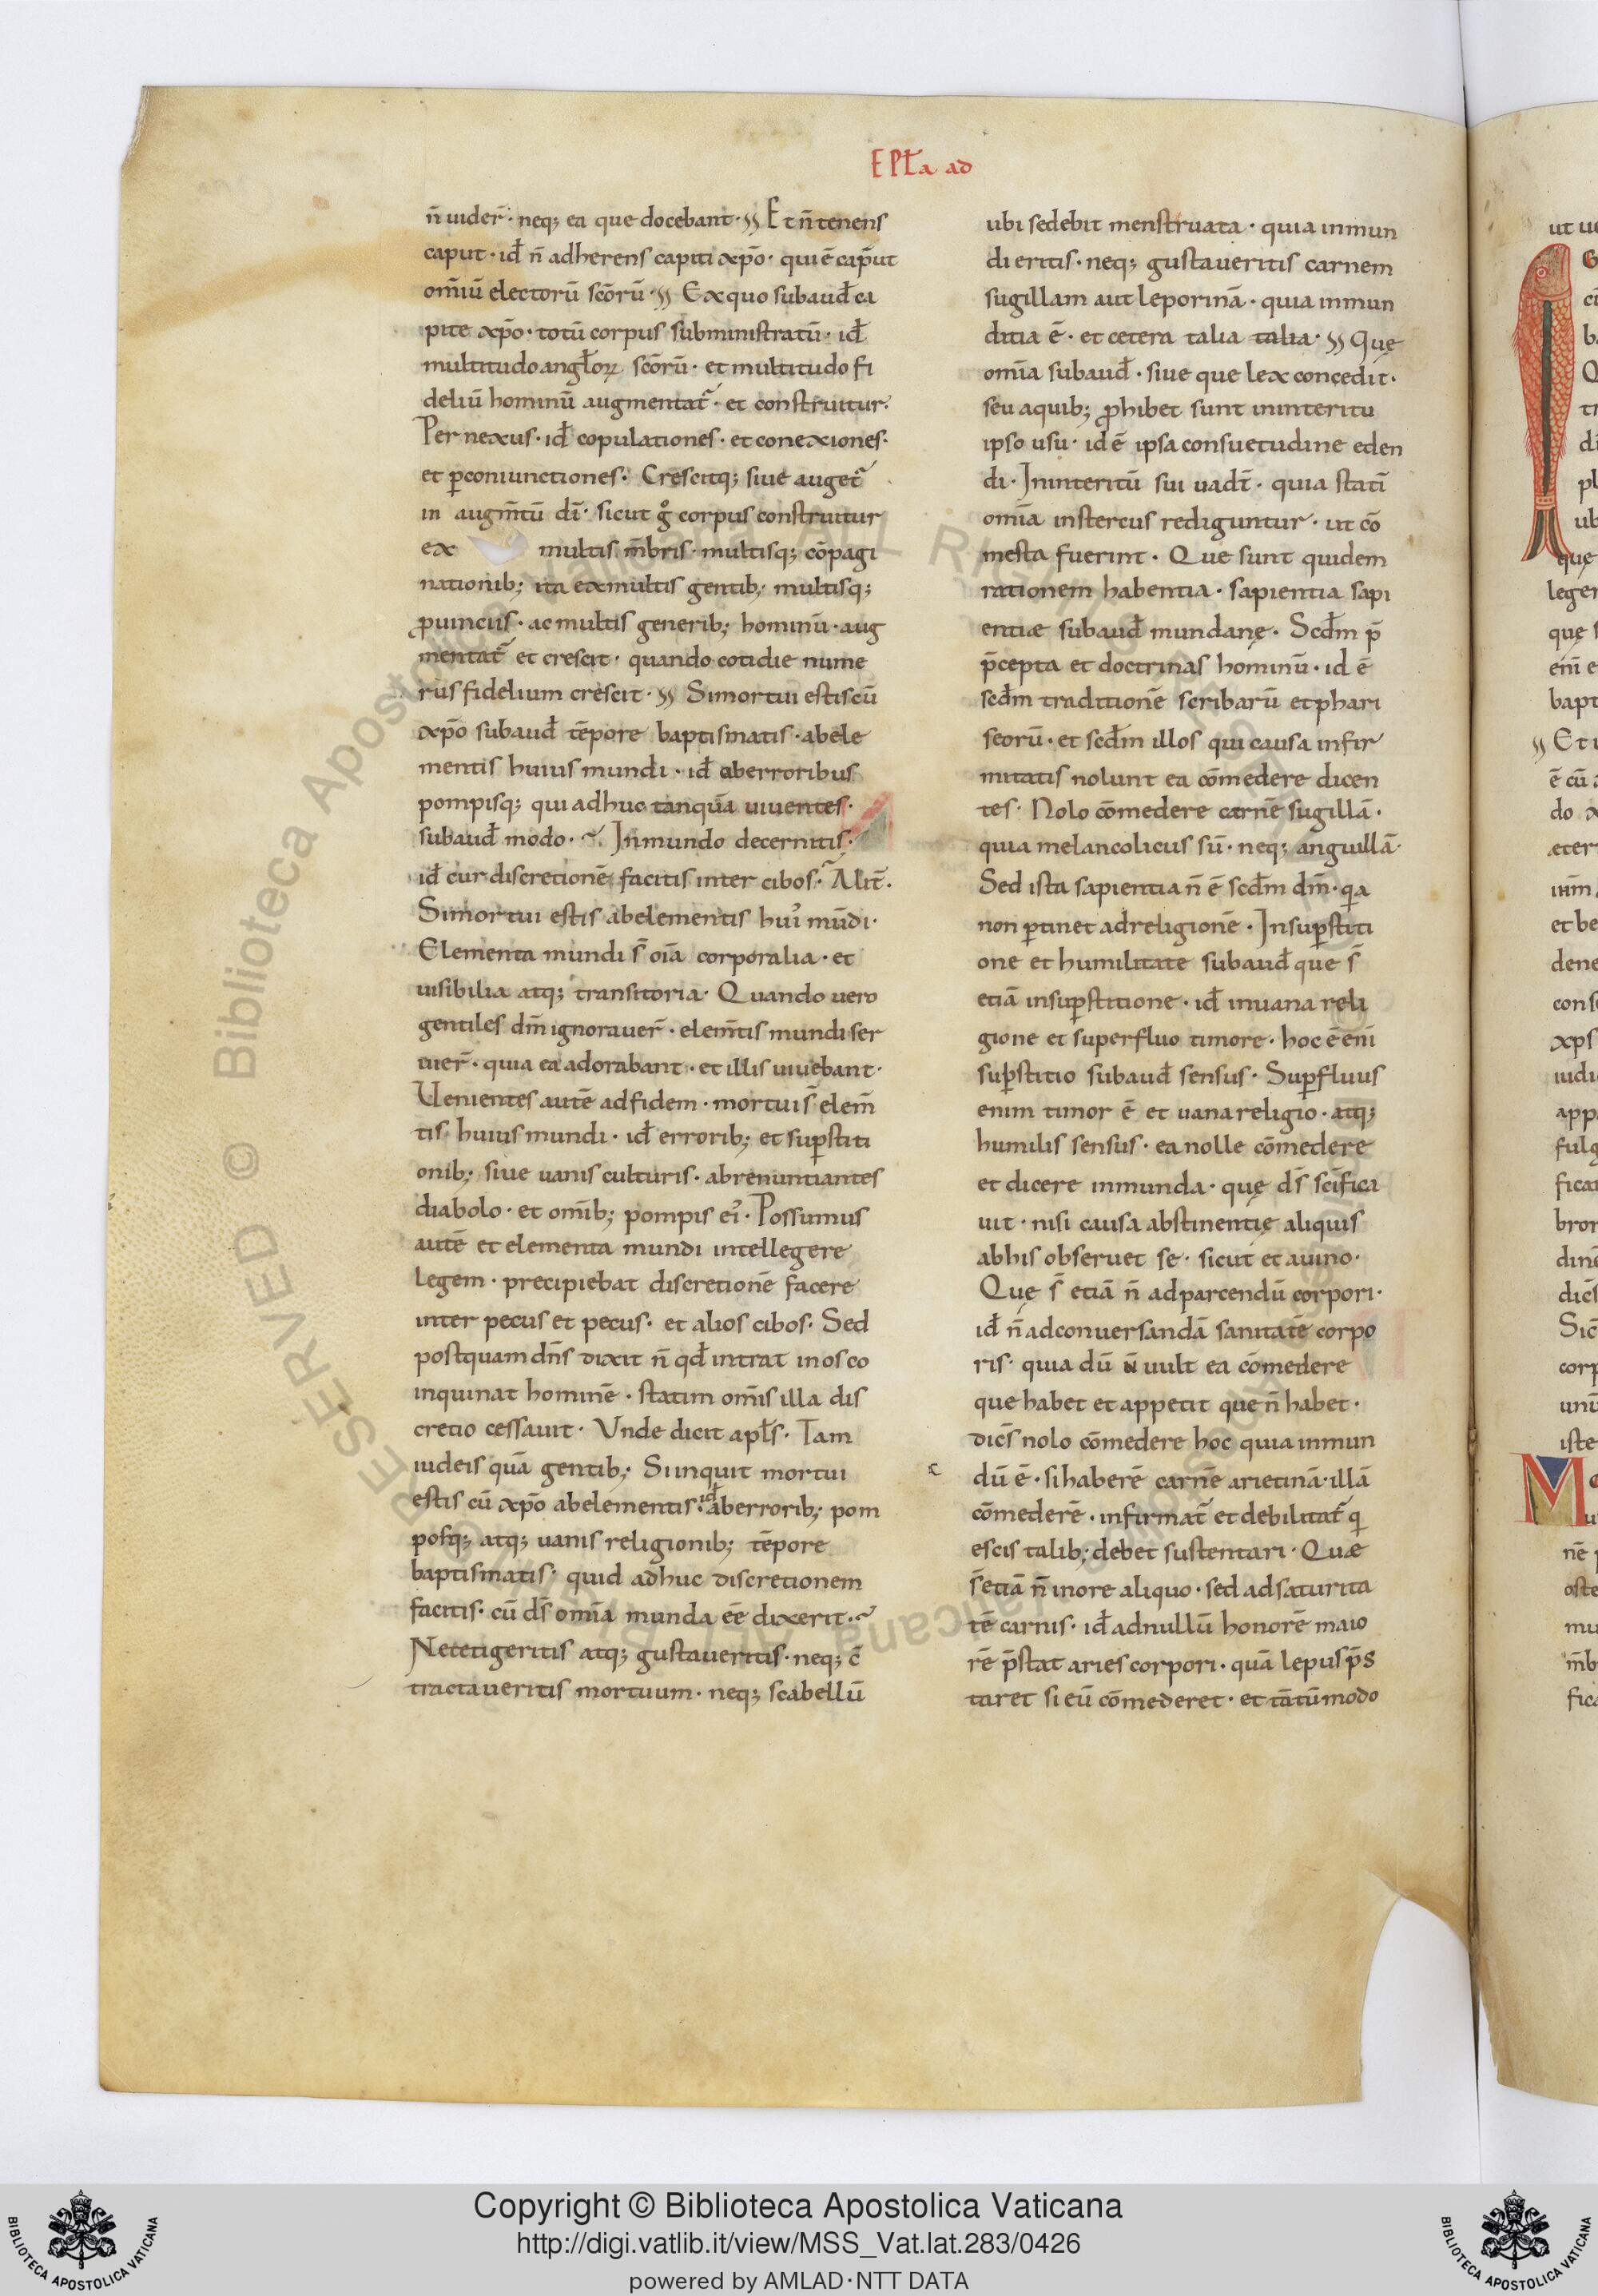 EPLa ad
n̄ uider̄· neq; ea que docebant· Et n̄ tenens
caput· id̄ n̄ adherens capiti xp̄o· qui ē cap̄ut
om̄iū electorū sc̄orū· Ex quo subaud̄ ca
pite xp̄o· totū corpus subministratū· id̄
multitudo angl̄oꝝ sc̄orū· et multitudo fi
deliū hominū augmentat᷑· et construitur·
Per nexus· id̄ copulationes· et conexiones·
et ꝑconiunctiones· Crescitq; siue auget᷑
in augm̄tū dī· sicut gͦ corpus construitur
ex multis m̄bris· multisq; cōpagi
nationib; ita ex multis gentib; multisq;
ꝓuinciis· ac multis generib; hominū· aug
mentat᷑ et crescit· quando cotidie nume
rus fidelium crescit· Si mortui estis cū
xp̄o subaud̄ tēpore baptismatis· ab ele
mentis huius mundi· id̄ ab erroribus
pompisq; qui adhuc tanquā uiuentes·
subaud̄ modo· In mundo decernitis·
id̄ cur discretionē facitis inter cibos· Alit̄·
Si mortui estis ab elementis hui᷒ mūdi·
Elementa mundi s̄ oīa corporalia· et
uisibilia atq; transitoria· Quando uero
gentiles dm̄ ignorauer̄· elem̄tis mundi ser
uier̄· quia ea adorabant· et illis uiuebant·
Uenientes autē ad fidem· mortui s̄ elem̄
tis huius mundi· id̄ errorib; et suꝑstiti
onib; siue uanis culturis· abrenuntiantes
diabolo· et om̄ib; pompis ei᷒· Possumus
autē et elementa mundi intellegere
legem· precipiebat discretionē facere
inter pecus et pecus· et alios cibos· Sed
postquam dn̄s dixit n̄ qd̄ intrat in os co
inquinat hominē· statim om̄is illa dis
cretio cessauit· Vnde dicit apl̄s· Tam
iudeis quā gentib; Si inquit mortui
estis cū xp̄o ab elementis· id̄ ab errorib; pom
posq; atq; uanis religionib; tēpore
baptismatis· quid adhuc discretionem
facitis· cū ds̄ om̄ia munda eē dixerit·
Ne tetigeritis atq; gustaueritis· neq; c̄
tractaueritis mortuum· neq; scabellū
ubi sedebit menstruata· quia inmun
di eritis· neq; gustaueritis carnem
sugillam aut leporinā· quia inmun
ditia ē· et cetera talia talia· Quę
om̄ia subaud̄· siue que lex concedit·
seu a quib; ꝓhibet sunt in interitu
ipso usu· id ē ipsa consuetudine eden
di· In interitū sui uadt̄· quia statī
om̄ia in stercus rediguntur· ut cō
mesta fuerint· Que sunt quidem
rationem habentia· sapientia sapi
entiæ subaud̄ mundanę· Scd̄m p̄
p̄cepta et doctrinas hominū· id ē
scd̄m traditionē scribarū et phari
seorū· et scd̄m illos qui causa infir
mitatis nolunt ea cōmedere dicen
tes· Nolo cōmedere carnē sugillā·
quia melancolicus sū· neq; anguillā·
Sed ista sapientia n̄ ē scd̄m dm̄· qa
non ꝑtinet ad religionē· In suꝑstiti
one et humilitate subaud̄ que s̄
etiā in suꝑstitione· id̄ in uana reli
gione et superfluo timore· hoc ē enī
suꝑstitio subaud̄ sensus· Suꝑfluus
enim timor ē et uana religio· atq;
humilis sensus· ea nolle cōmedere
et dicere inmunda· quę ds̄ sc̄ifica
uit· nisi causa abstinentię aliquis
ab his obseruet se· sicut et a uino·
Quę s̄ etiā n̄ ad parcendū corpori·
id̄ n̄ ad conuersandā sanitatē corpo
ris· quia dū n̄ uult ea cōmedere
que habet et appetit que n̄ habet·
dic̄s nolo cōmedere hoc quia inmun
dū ē· si haberē carnē arietinā· illā
cōmederē· infirmat᷑ et debilitat᷑ qi
escis talib; debet sustentari· Quæ
s̄ etiā n̄ inore aliquo· sed ad saturita
tē carnis· id̄ ad nullū honorē maio
rē p̄stat aries corpori· quā lepus p̄s
taret si eū cōmederet· et tātūmodo
ut
que
leger
que
bapt
Et
dene
app
fulg
fica
bron
corp
iste
Copyright © Biblioteca Apostolica Vaticana
http://digi.vatlib.it/view/MSS_Vat.lat.283/0426
powered by AMLAD·NTT DATA
BIBLIOTECA APOSTOLICA VATICANA
BIBLIOTECA APOSTOLICA VATICANA